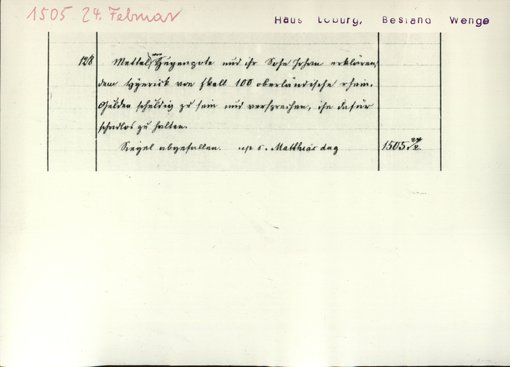 1505 24. Februar
Haus Loburg, Bestand Wenge
128 Mettel von Hugenpote und ihr Sohn Johan erklären,
dem Dyerick von Ekell 100 oberländische rhein.
Gulden schuldig zu sein und versprechen, ihn dafür
schadlos zu halten.
Siegel abgefallen. s. Matthias dag 1505 24/2